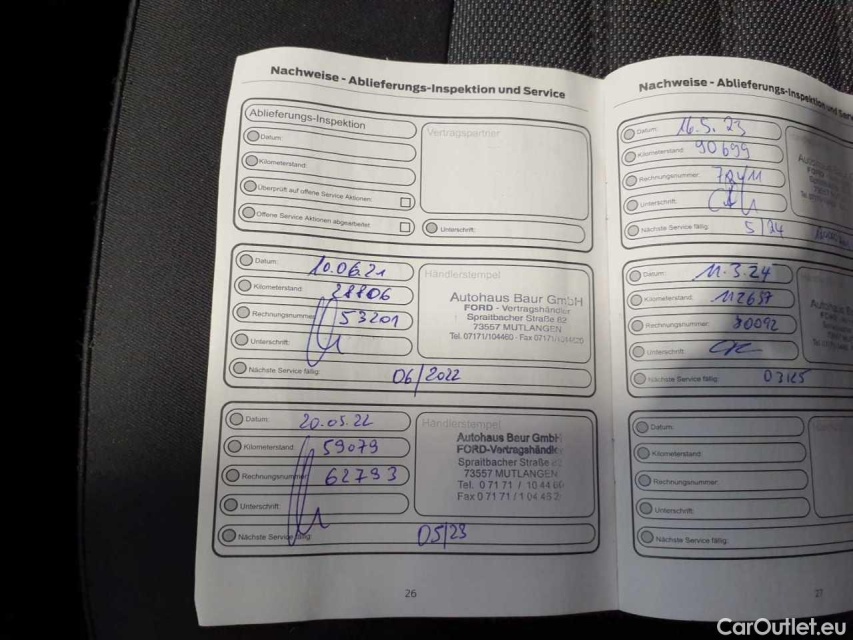 Nachweise - Ablieferungs-Inspektion und Service
Ablieferungs-Inspektion
Datum:
Kilometerstand:
Überprüft auf offene Service Aktionen:
Offene Service Aktionen abgearbeitet:
Vertragspartner
Unterschrift:
Datum: 10.06.21
Kilometerstand: 28806
Rechnungsnummer: 53201
Unterschrift:
Nächste Service fällig: 06/2022
Händlerstempel
Autohaus Baur GmbH
FORD - Vertragshändler
Spraitbacher Straße 62
73557 MUTLANGEN
Tel. 07171/104460 - Fax 07171/
Datum: 20.05.22
Kilometerstand: 59079
Rechnungsnummer: 62793
Unterschrift:
Nächste Service fällig: 05/23
Händlerstempel
Autohaus Baur GmbH
FORD-Vertragshändle
Spraitbacher Straße
73557 MUTLANGEN
Tel. 0 71 71 / 10 44 60
Fax 0 71 71 / 1 04 45 2
26
Nachweise - Ablieferungs-Inspektion und Serv
Datum: 16.5.23
Kilometerstand: 90699
Rechnungsnummer:
Unterschrift:
Nächste Service fällig: 5/24
Autohaus
FORD
73557
Datum: 11.3.24
Kilometerstand: 112657
Rechnungsnummer: 80092
Unterschrift:
Nächste Service fällig: 03/25
Autohaus
FORD
Datum:
Kilometerstand:
Rechnungsnummer:
Unterschrift:
Nächste Service fällig:
27
CarOutlet.eu